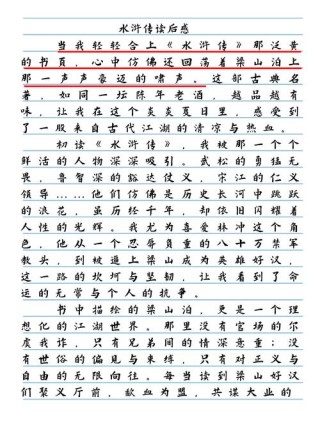 水浒传读后感
当我轻轻合上《水浒传》那泛黄
的书页，心中仿佛还回荡着梁山泊上
那一声声豪迈的啸声。这部古典名
著，如同一坛陈年老酒，越品越有
味，让我在这个炎炎夏日里，感受到
了一股来自古代江湖的清凉与热血。
初读《水浒传》，我被那一个个
鲜活的人物深深吸引。武松的勇猛无
畏、鲁智深的豁达仗义、宋江的仁义
领导……他们仿佛是历史长河中跳跃
的浪花，虽历经千年，却依旧闪耀着
人性的光辉。我尤为喜爱林冲这个角
色，他从一个忍辱负重的八十万禁军
教头，到被逼上梁山成为英雄好汉，
这一路的坎坷与坚韧，让我看到了命
运的无常与个人的抗争。
书中描绘的梁山泊，更是一个理
想化的江湖世界。那里没有官场的尔
虞我诈，只有兄弟间的情深意重；没
有世俗的偏见与束缚，只有对正义与
自由的无限向往。每当读到梁山好汉
们聚义厅前，歃血为盟，共谋大业的